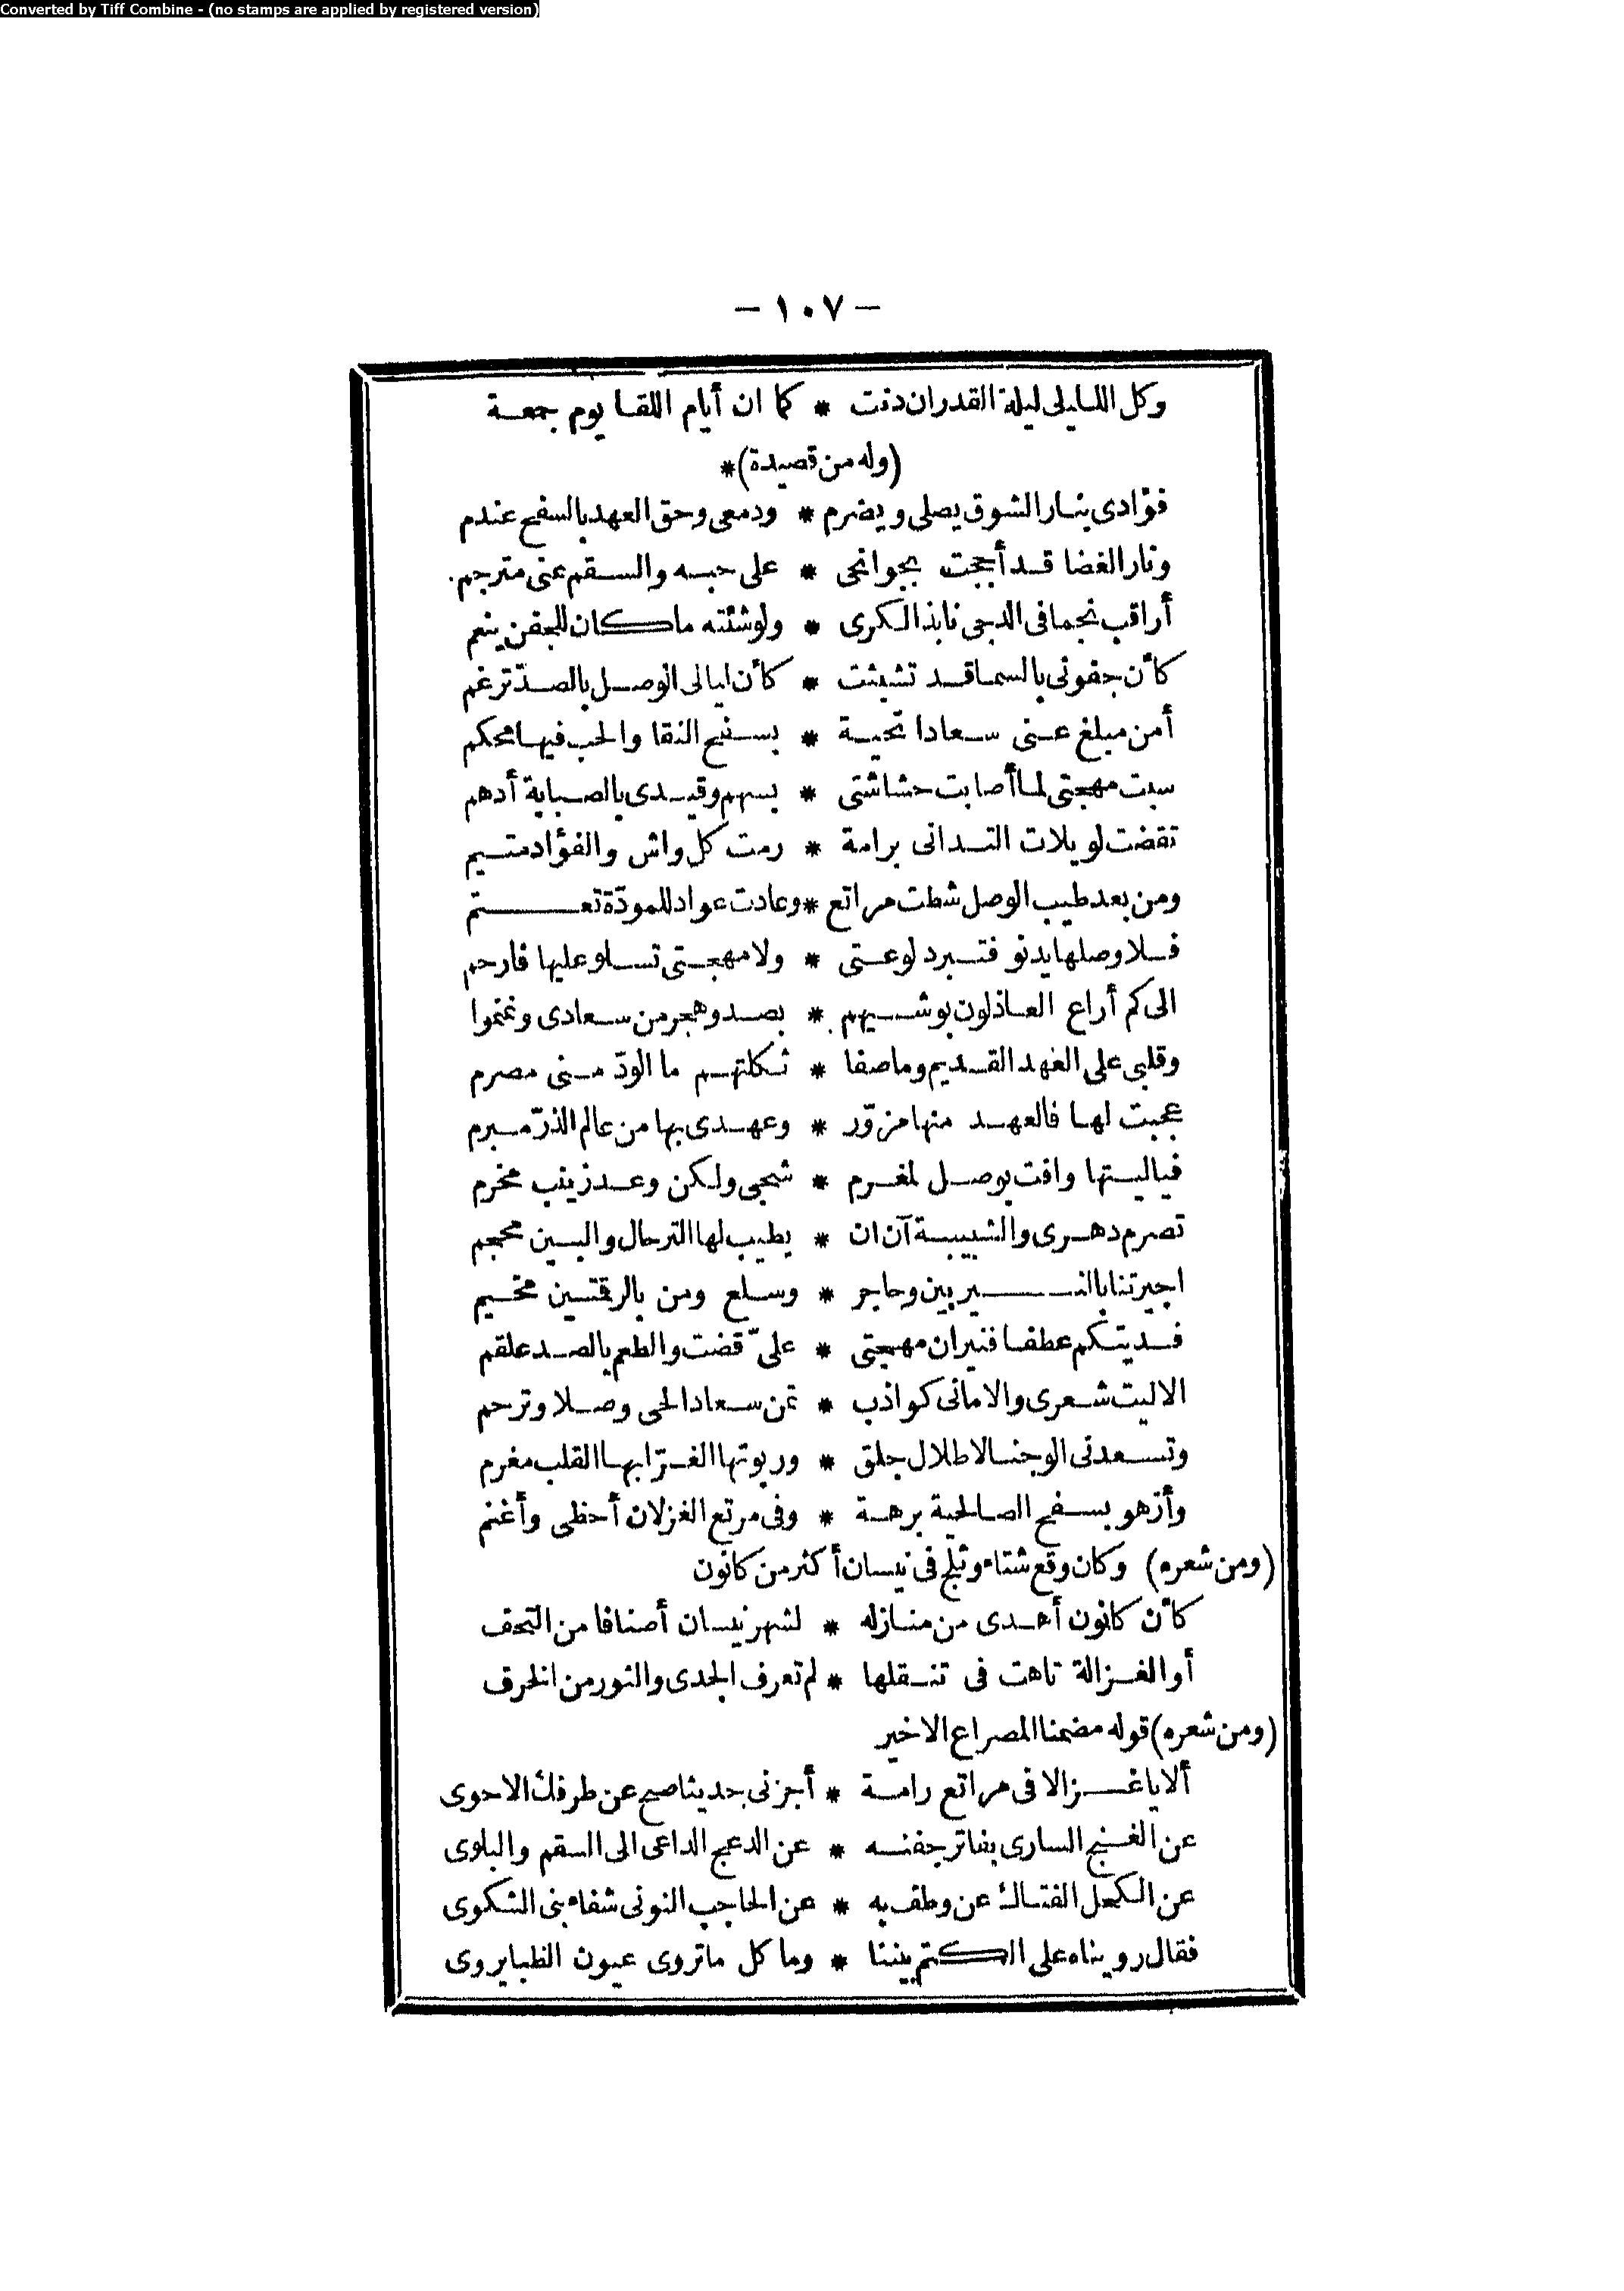 Converted by Tiff Combine - (no stamps are applied by registered version)
— ١٠٧ —
وكل الليالى ليلة القدر ان دنت * كما ان أيام اللقا يوم جمعة
(وله من قصيدة)*
فؤادى بنار الشوق يصلى ويضرم * ودمعى وحق العهد بالسفح عندم
ونار الغضا قد أججت بجوانحى * على حبه والسقم عنى مترجم
أراقب نجما فى الدجى نابذ الكرى * ولوشئته ما كان للجفن ينعم
كأن جفونى بالسما قد تشبثت * كأن ليالى الوصل بالصدّ ترغم
أمن مبلغ عنى سعادا تحية * بسفح النقا والحب فيها محكم
سبت مهجتى لما أصابت حشاشتى * بسهم وقيدى بالصبابة أدهم
تقضت لويلات التدانى برامة * رمت كل واش والفؤاد متيم
ومن بعد طيب الوصل شطت مراتع * وعادت عواد للمودّة تعــتم
فلا وصلها يدنو فتبرد لوعتى * ولا مهجتى تسلو عليها فارحم
الى كم أراع العاذلون بوشيهم * بصد وهجر من سعادى ونمنموا
وقلبى على العهد القديم وما صفا * ثكلتهم ما الودّ منى مصرم
عجبت لها فالعهد منها مزوّر * وعهدى بها من عالم الذرّ مبرم
فياليتها وافت بوصل لمغرم * شجى ولكن وعد زينب مخرم
تصرم دهرى والشبيبة آن ان * يطيب لها الترحال والبين محجم
اجيرتنا بالنــيربين وحاجر * وسلع ومن بالرقتين مخيم
فديتكم عطفا فنيران مهجتى * علىّ قضت والطعم بالصد علقم
الا ليت شعرى والامانى كواذب * تمن سعاد الحى وصلا وترحم
وتسعدنى الوجنا لاطلال جلق * وربوتها الغرّا بها القلب مغرم
وأزهو بسفح الصالحية برهة * وفى مرتع الغزلان أحظى وأغنم
(ومن شعره) وكان وقع شتاء وثلج فى نيسان أكثر من كانون
كأن كانون أهدى من منازله * لشهر نيسان أصنافا من التحف
أو الغزالة تاهت فى تنقلها * لم تعرف الجدى والثور من الخرف
(ومن شعره) قوله مضمنا المصراع الاخير
ألا يا غزالا فى مراتع رامة * أجزنى حديثا صح عن طرفك الاحوى
عن الغنج السارى بفاتر جفنه * عن الدعج الداعى الى السقم والبلوى
عن الكحل الفتاك عن وطف به * عن الحاجب النونى شفاء بنى الشكوى
فقال رويناه على الكتم بيننا * وما كل ما تروى عيون الظبا يروى